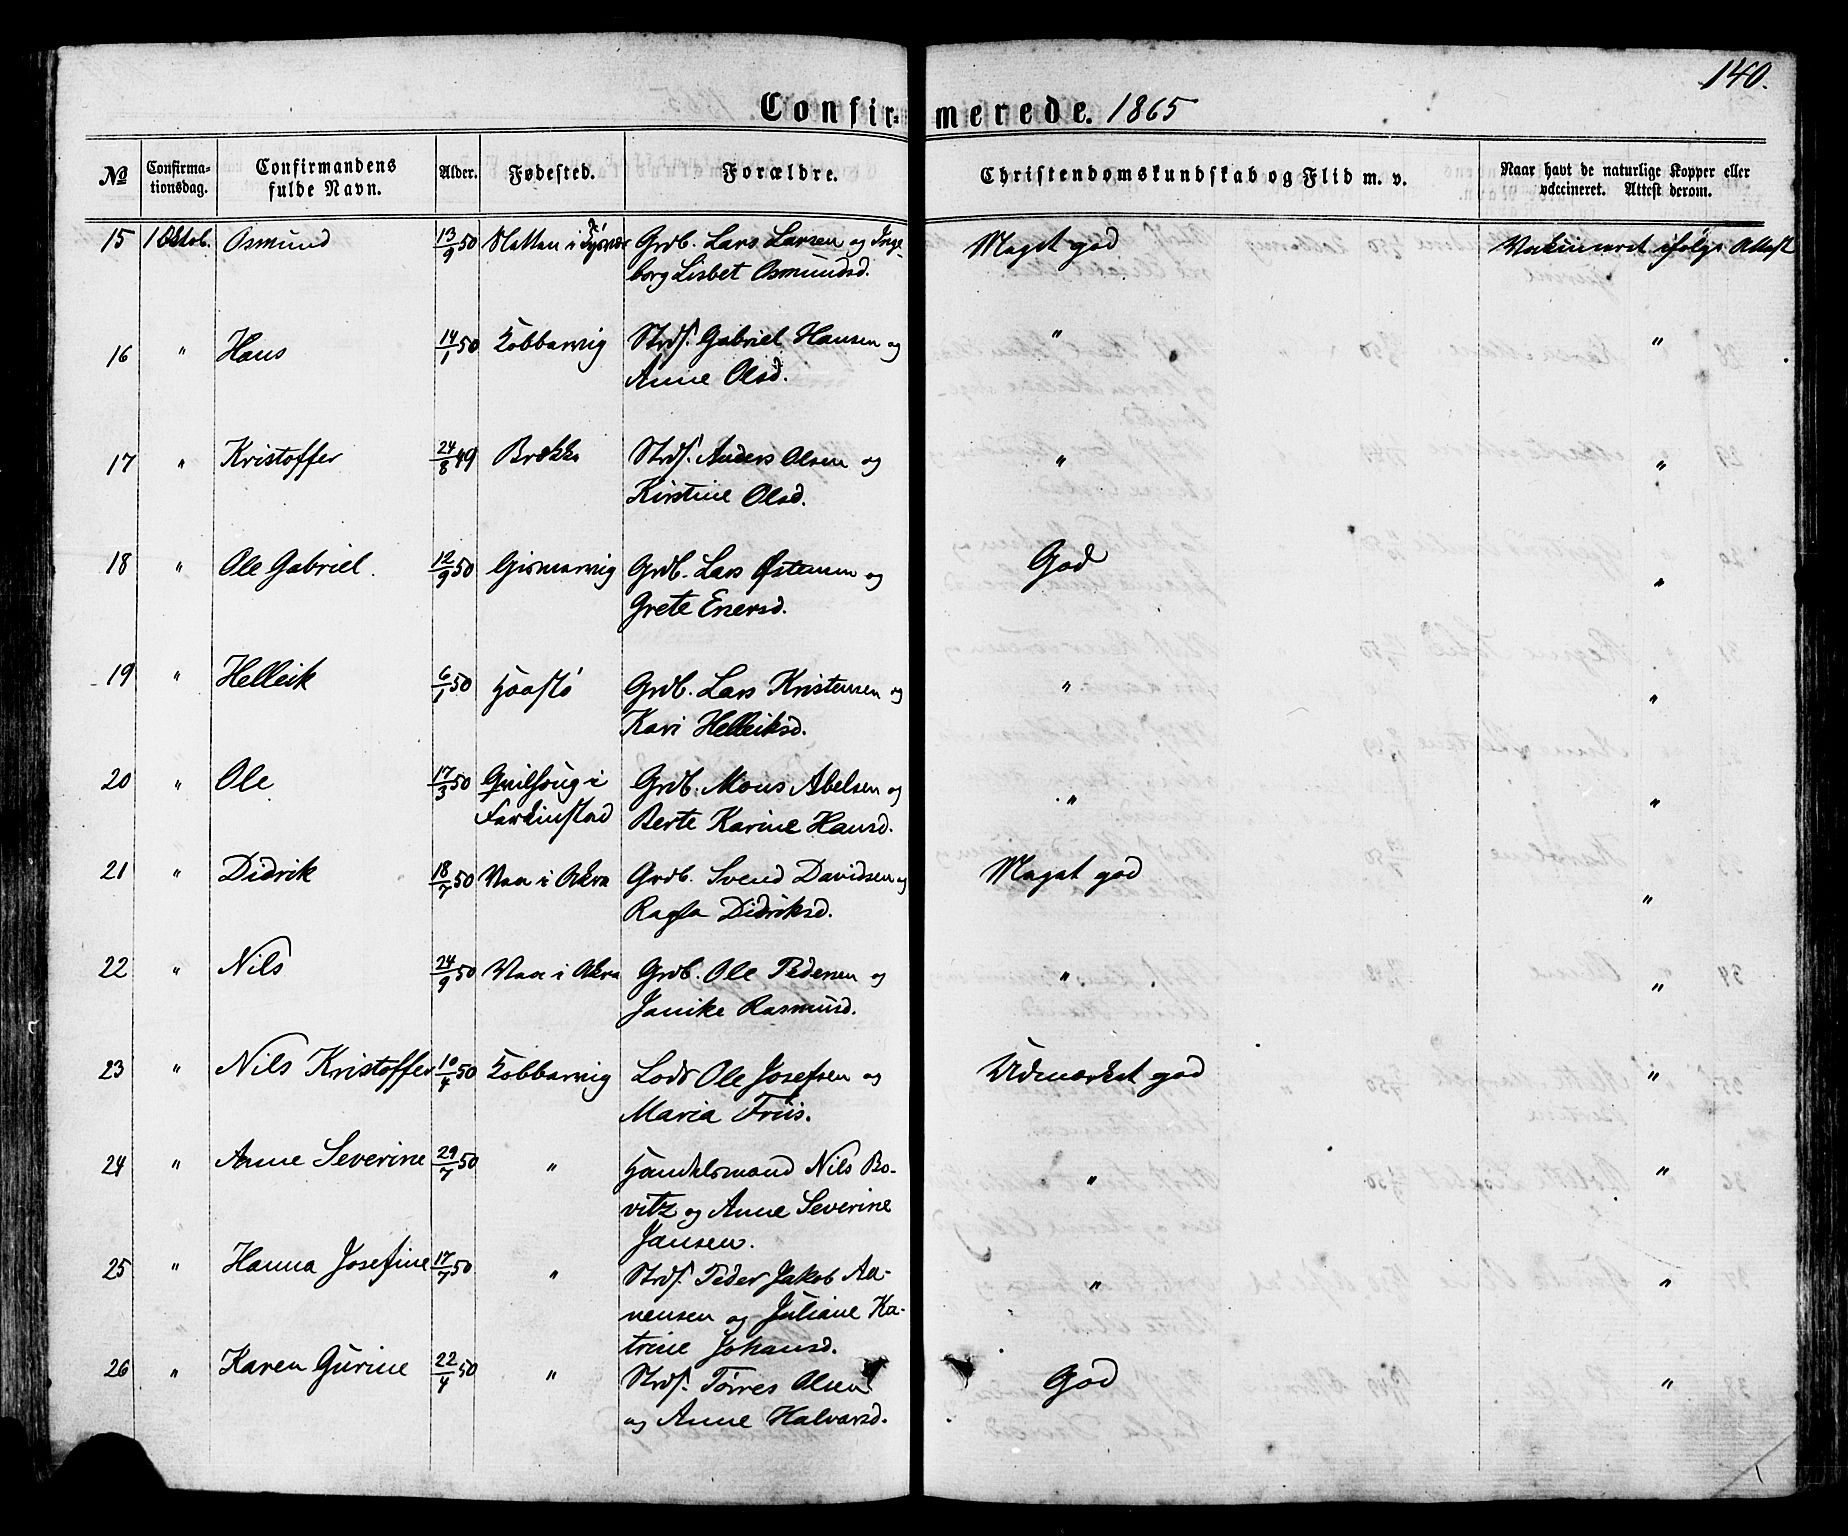 140.
Confir- merede. 1865
No Confirma- tionsdag. Confirmandens fulde Navn. Alder. Fødested. Forældre. Christendomskundskab og Flid m. v. Naar havt de naturlige Kopper eller vaccineret. Attest derom.
15 1 Oktob. Osmund 13/9 50 Grdb. Lars Larsen og Inge- Meget god Vakcineret ifølge Attest
borg Lisbet Osmundsd.
16 " Hans 14/1 50 Kobbarvig Strds. Gabriel Hansen og " "
Anne Olsd.
17 " Kristoffer 24/8 49 Brekke Strds. Anders Olsen og " "
Kirstine Olsd.
18 " Ole Gabriel. 12/9 50 Gismarvig Grdb. Lars Østensen og God "
Grete Enersd.
19 " Helleik 6/1 50 Haastø Grdb. Lars Kristensen og " "
Kari Helleiksd.
20 " Ole 17/3 50 i Grdb. Mons Abelsen og " "
Ferkinstad Berte Karine Hansd.
21 " Didrik 18/7 50 Vea i Akra Grdb. Svend Davidsen og Meget god "
Ragla Didriksd.
22 " Nils 24/9 50 Vea i Akra Grdb. Ole Pedersen og " "
Janike Rasmusd.
23 " Nils Kristoffer 10/4 50 Kobbarvig Lods Ole Josefsen og Udmærket god "
Maria Friis.
24 " Anne Severine 29/7 50 " Handelsmand Nils Bo- " "
vitz og Anne Severine
Jansen.
25 " Hanna Josefine 17/7 50 " Strds. Peder Jakob Aa- " "
nensen og Juliane Ka-
trine Johansd.
26 " Karen Gurine 22/4 50 " Strds. Tørres Olsen God "
og Anne Halvarsd.